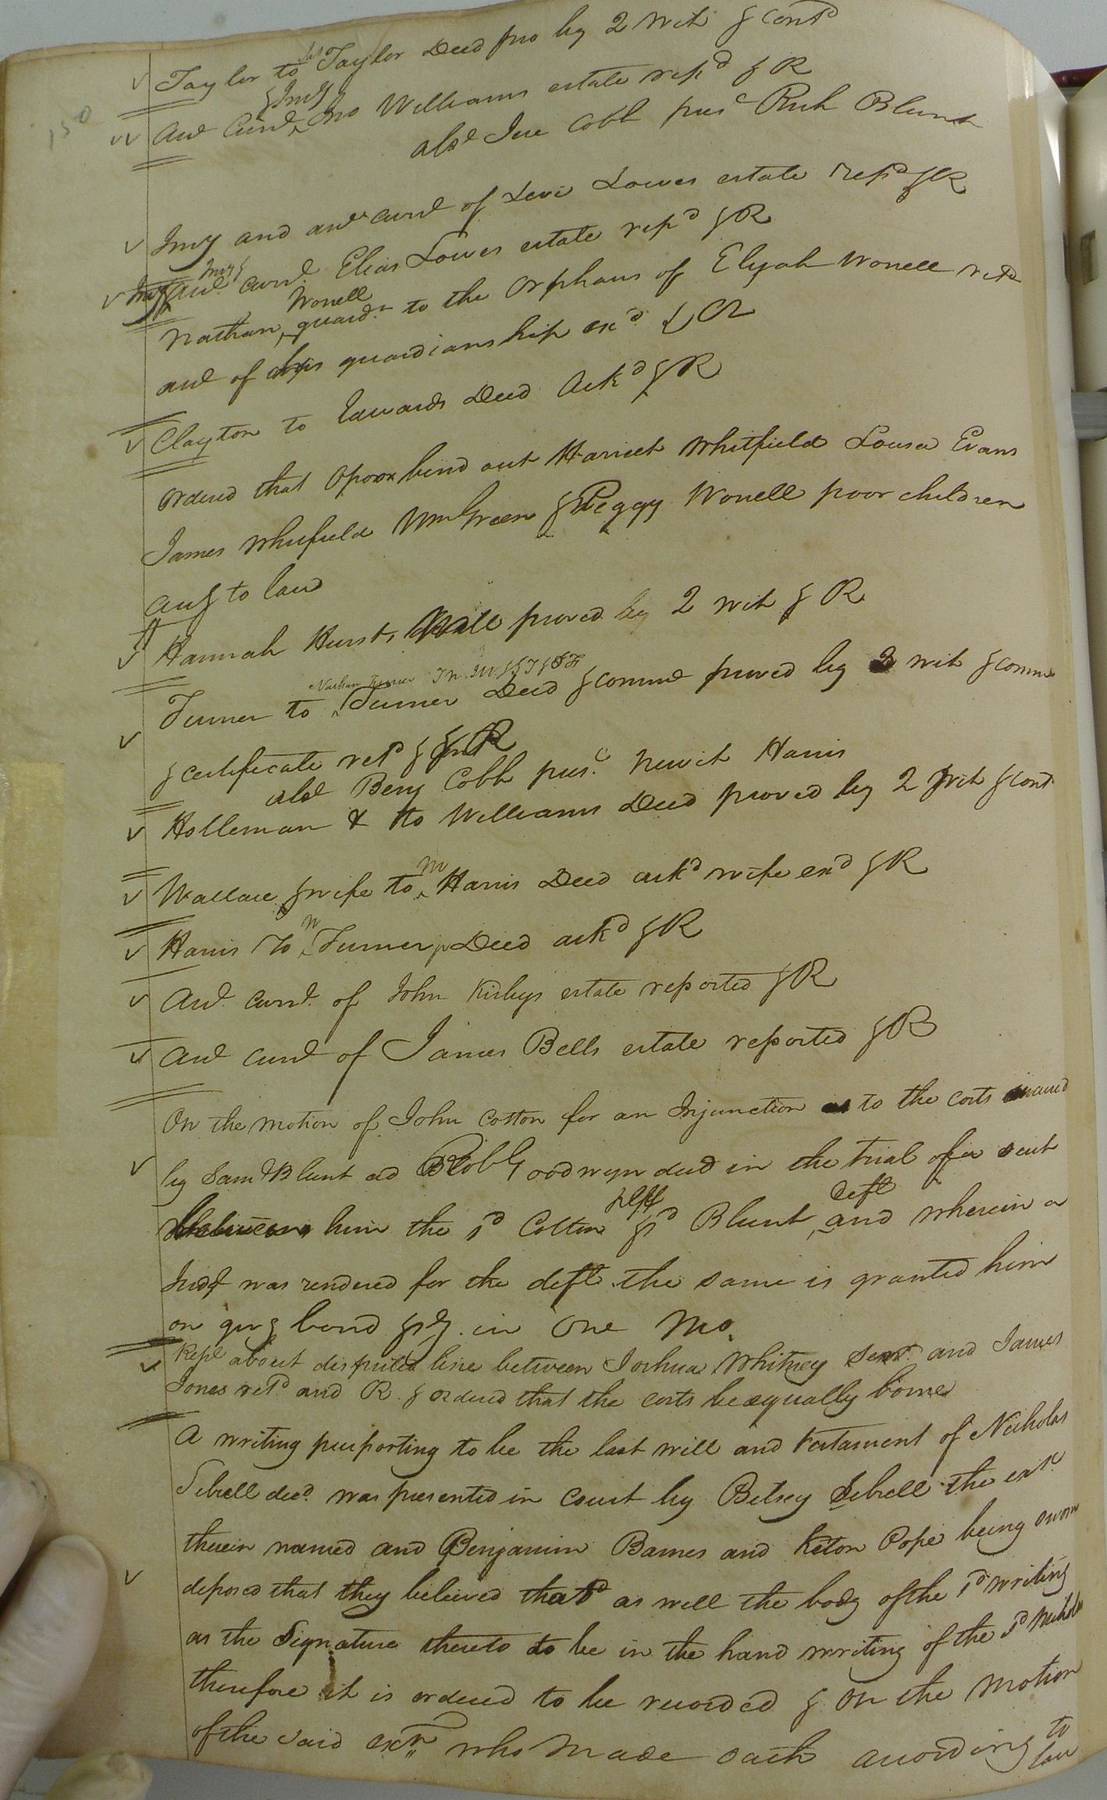 150
Taylor to Taylor Deed pro by 2 wit & contd
Aud Curnt & Invy Jno Williams estate repd & R
absd Jere Cobb prest Rich Blunt
Invy and aud curnt of Levi Lowes estate repd & R
Invy & aud curnt Elias Lowes estate repd & R
Nathan Worrell guardn to the orphans of Elijah Worrell retd
aud of his guardianship exd & R
Clayton to Edwards Deed Ackd & R
Ordered that Opoor bind out Harriet Whitfield Louisa Evans
James Whitfield Wm Green & Peggy Worrell poor children
accg to law
Hannah Hursts Will proved by 2 wit & R
Turner to Turner Deed & commd proved by 3 wit & comm
& certificate retd & R
absd Benj Cobb prest Newit Harris
Holleman & to Williams Deed proved by 2 wit & cont
Wallace & wife to M Harris Deed ackd wife exd & R
Harris to N Turner Deed ackd & R
Aud curnt of John Kirbys estate reported & R
Aud curnt of James Bells estate reported & R
On the motion of John Cotton for an Injunction as to the costs incurred
by Saml Blunt ad Robt Goodwyn decd in the trial of a suit
between him the sd Cotton plff & sd Blunt deft and wherein a
Judgt was rendered for the deft the same is granted him
on givg bond &c in one Mo.
Rept about disputed line between Joshua Whitney Senr and James
Jones retd and R & ordered that the costs be equally borne
A writing purporting to be the last will and testament of Nicholas
Sebrell decd was presented in court by Betsey Sebrell the exr
therein named and Benjamin Barnes and Keton Pope being sworn
deposed that they believed that as well the body of the sd writing
as the Signature thereto to be in the hand writing of the sd Nicholas
therefore it is ordered to be recorded & on the motion
of the said exrx who made oath according to law